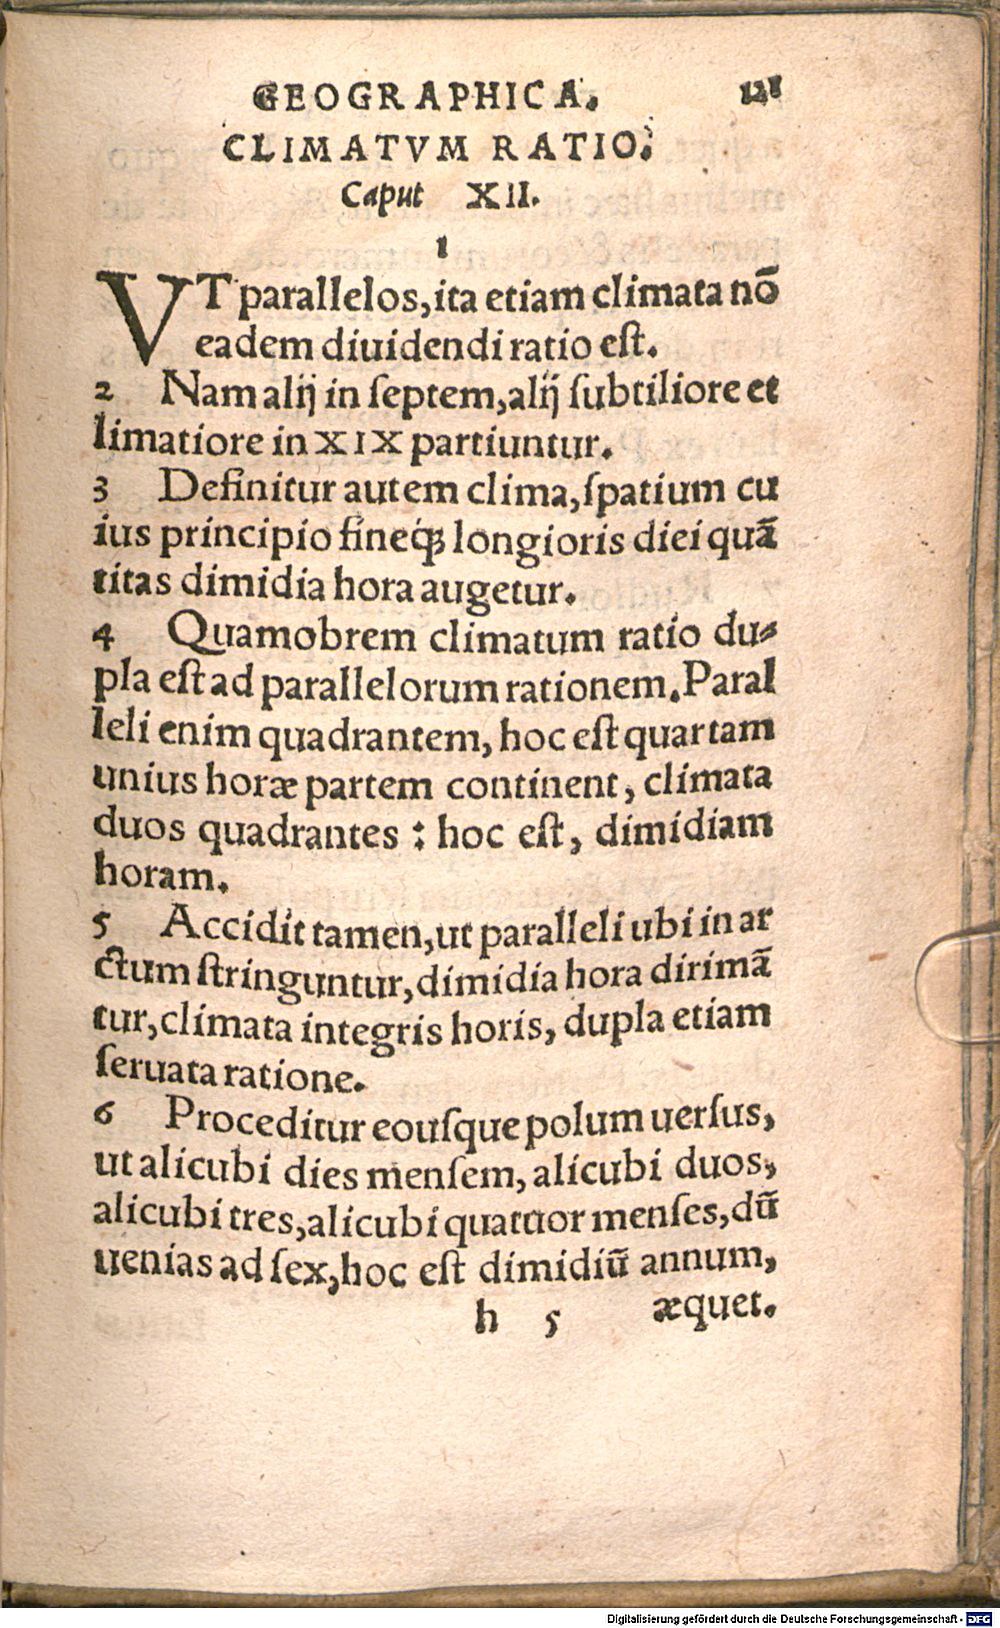 GEOGRAPHICA. 121
CLIMATVM RATIO.
Caput XII.
1
VT parallelos, ita etiam climata nō
eadem diuidendi ratio est.
2 Nam alij in septem, alij subtiliore et
limatiore in XIX partiuntur.
3 Definitur autem clima, spatium cu
ius principio fineq; longioris diei quā
titas dimidia hora augetur.
4 Quamobrem climatum ratio du⸗
pla est ad parallelorum rationem. Paral
leli enim quadrantem, hoc est quartam
unius horæ partem continent, climata
duos quadrantes : hoc est, dimidiam
horam.
5 Accidit tamen, ut paralleli ubi in ar
ctum stringuntur, dimidia hora dirimā
tur, climata integris horis, dupla etiam
seruata ratione.
6 Proceditur eousque polum uersus,
ut alicubi dies mensem, alicubi duos,
alicubi tres, alicubi quatuor menses, dū
uenias ad sex, hoc est dimidiū annum,
h 5 æquet.
Digitalisierung gefördert durch die Deutsche Forschungsgemeinschaft - DFG